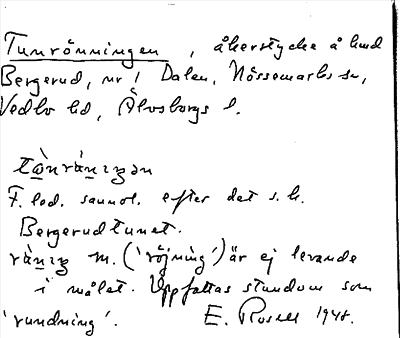 Tunrönningen, åkerstycke å hmd
Bergerud, nr 1 Dalen, Nössemarks sn,
Vedbo hd, Älvsborgs l.
F. led. sannol. efter det s.k.
Bergerudtunet.
m. ('röjning') är ej levande
i målet. Uppfattas stundom som
'rundning'. E. Rosell 1948.